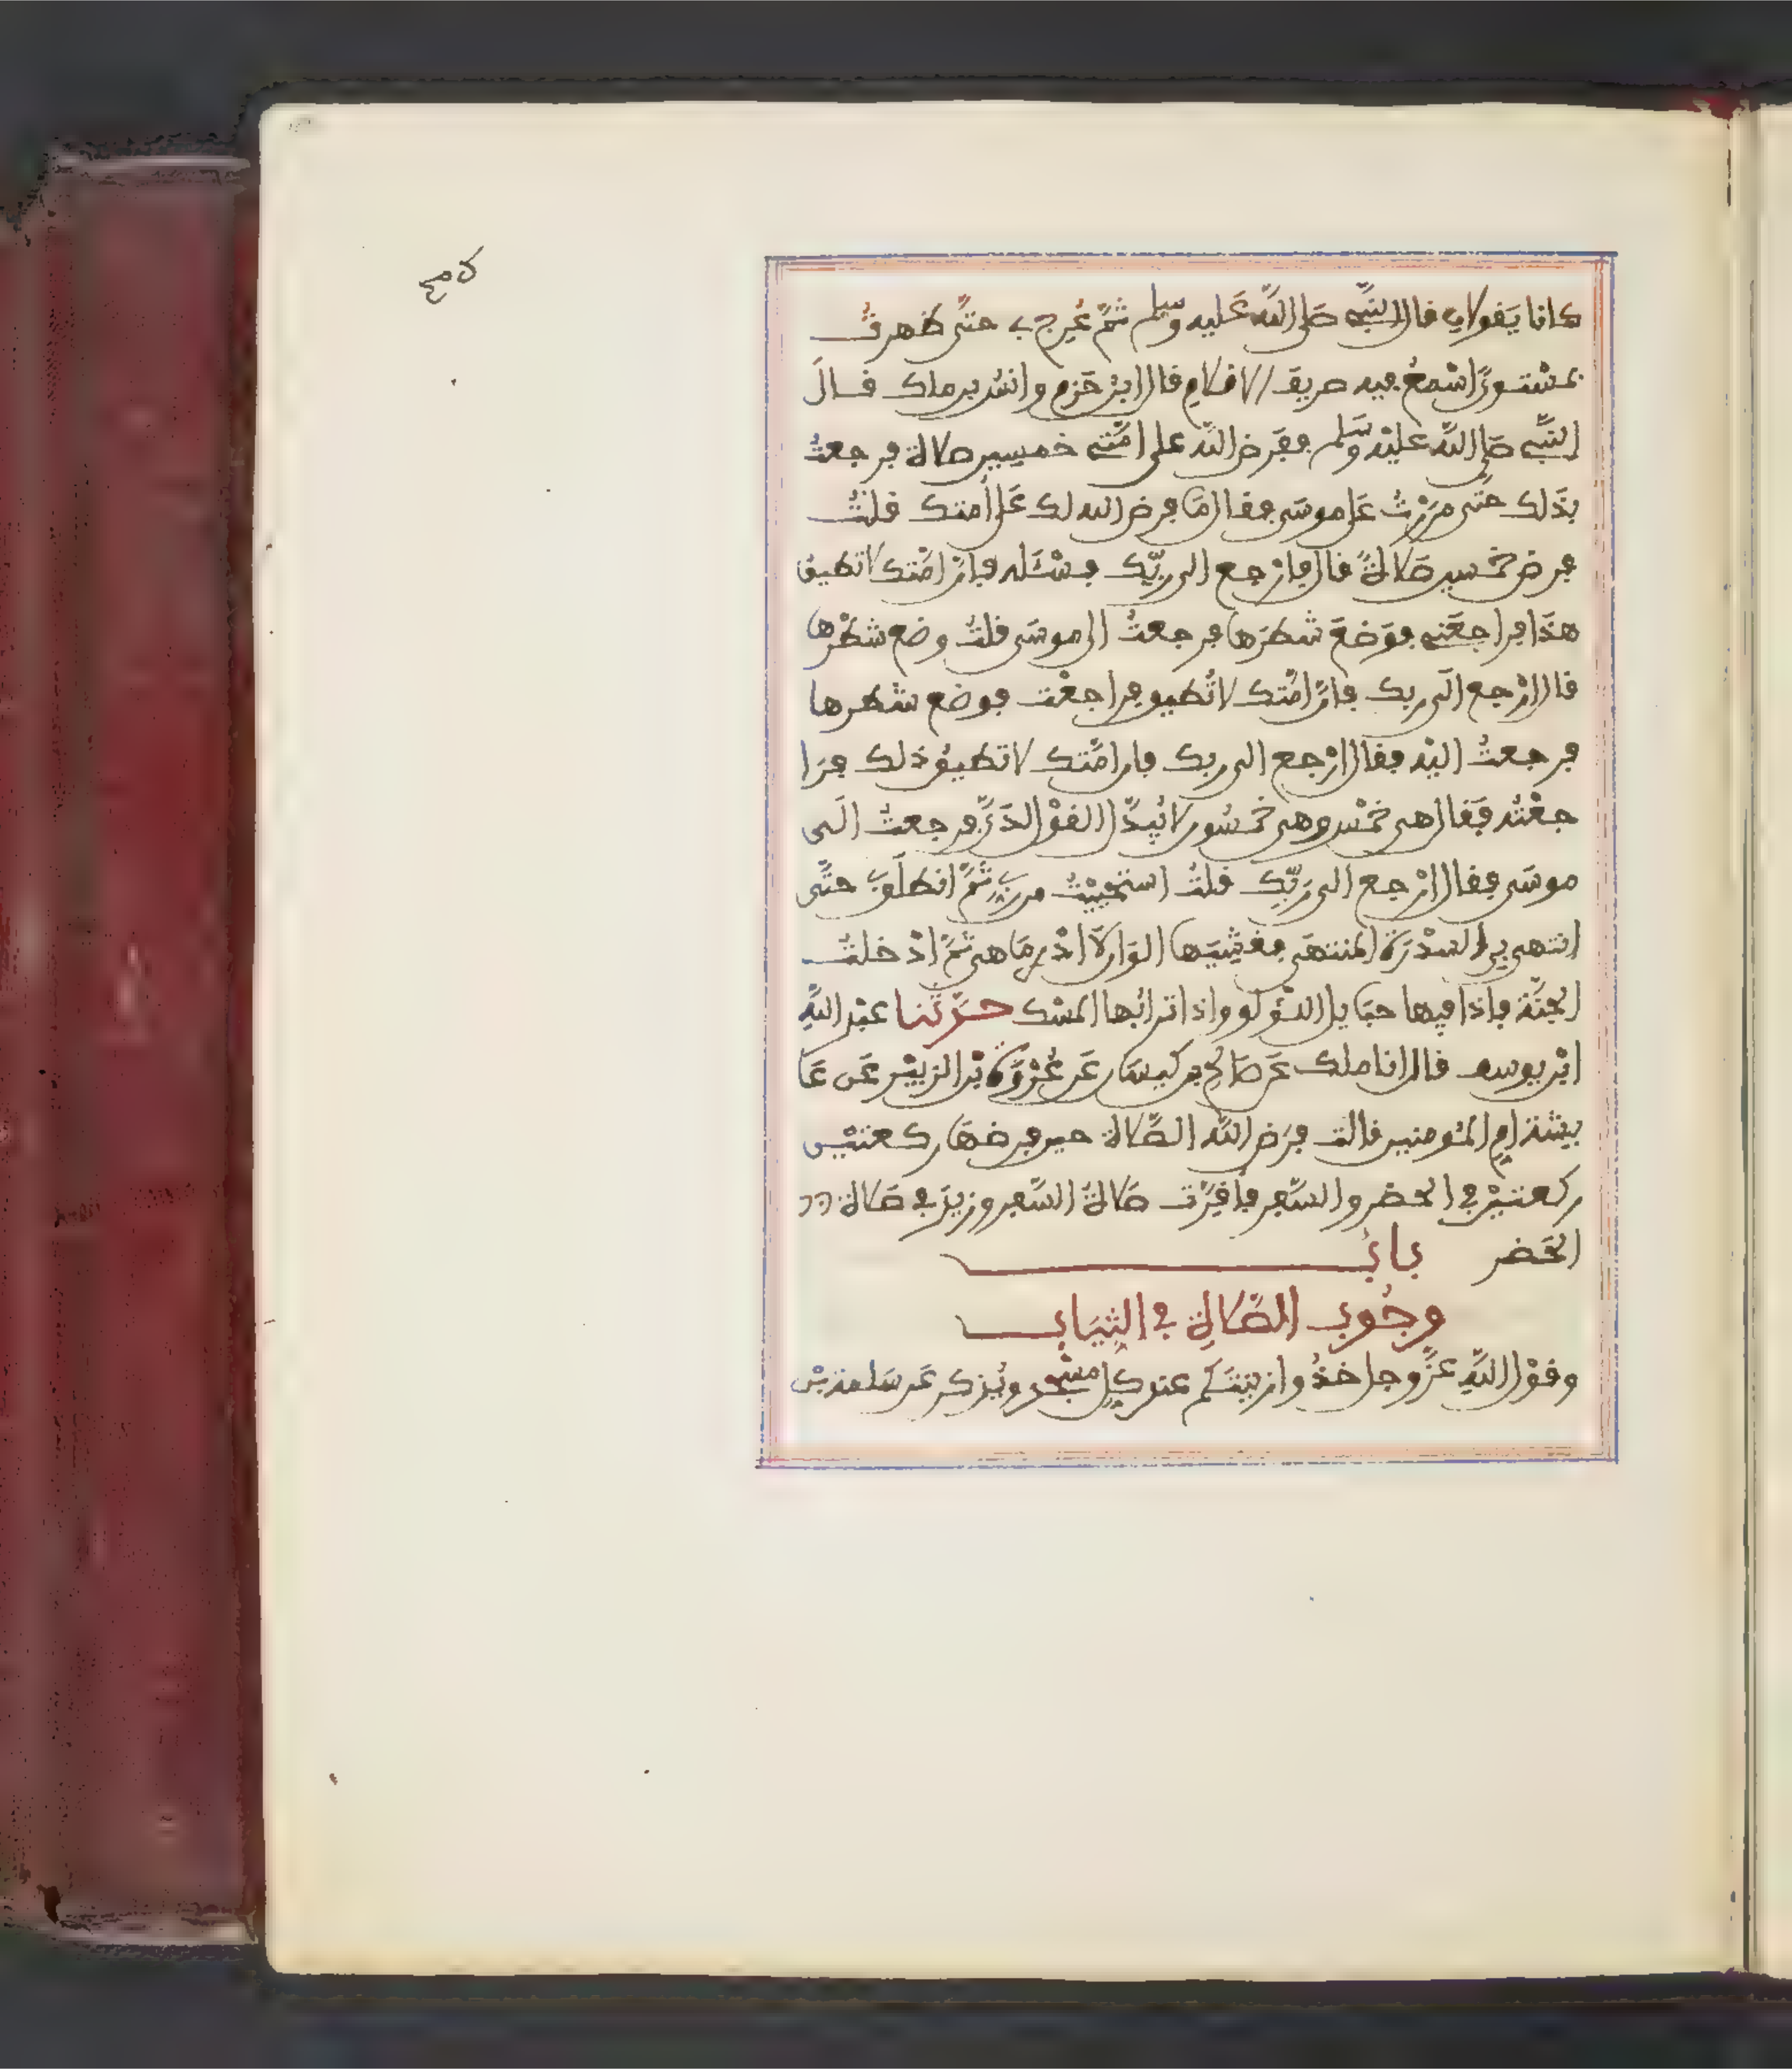 كانا يَقولانِ قال النبِّي صَلى اللّه عَليه وسلم ثمَّ عُرِج بي حتَّى ظهرتُ
بمستوىً اسْمعُ فيه صريف الاقلامِ قال ابنُ حَزمٍ وانسُ بن ملك قــالَ
النبِّي صَلى اللّه عليْه وَسَلم ففَرض اللّه على امَّتي خمسين صلاة فرجعتُ
بذَلك حتَّى مرَرْتُ عَلى موسَى فقال مَا فرض الله لك عَلى أُمتك قلتُ
فرض خمسين صَلاةً قال فارْجع الى ربِّك فسْئَله فإنَّ امَّتك لا تطيق
هذَا فراجعَني فوَضعَ شطرَها فرجعتُ الى موسَى قلتُ وضع شطْرها
قال ارْجع الَى ربك فإنَّ امَّتك لا تُطيق فراجعْت فوضع شطرها
فرجعتُ اليْه فقال ارْجع الى ربك فان امَّتك لا تطيقُ ذلك فرَا
جعْتُه فَقال هي خمْس وهي خمسُون لا يُبدَّل القوْل لدَيَّ فرجعتُ الَى
موسَى فقال ارْجع الى رَبِّك قلتُ استحْيَيْتُ من ربِّي ثمَّ انطلَق بي حتَّى
انتهى بي الى السدْرَة المنتهَى فغشِيَها الوَان لَا ادْرِي مَا هي ثمَّ ادْخلتُ
الجنَّة فإذا فيها حبَايل اللؤلؤ واذا ترابُها المسْك حـدَّثنا عبْد اللّهِ
ابْن يوسف قال انا ملك عَن صَالح بن كيسَان عَن عُرْوَة بْن الزبيْر عَن عَا
يشة امِ المُومنين قالت فرَض اللَّه الصَّلاة حين فرضهَا ركعتيْن
ركعتيْن في الحضر والسَّفر فأقِرَّت صَلاةُ السَّفر وزيدَ في صَلاة
الحَضر بابُ
وجُوب الصَّلاةِ في الثِيَاب
وقوْل اللَّهِ عزَّ وجل خذُوا زينتَكم عند كلِ مسْجد ويُذكر عَن سَلمة بْن